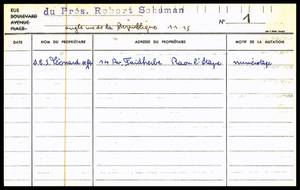 RUE
BOULEVARD
AVENUE
PLACE
du Prés. Robert Schuman
angle rue de la République 11.15
N° 1
DATE
NOM DU PROPRIÉTAIRE
ADRESSE DU PROPRIÉTAIRE
MOTIF DE LA MUTATION
Léonard 14 Av. Faidherbe Raon l'étape numérotage